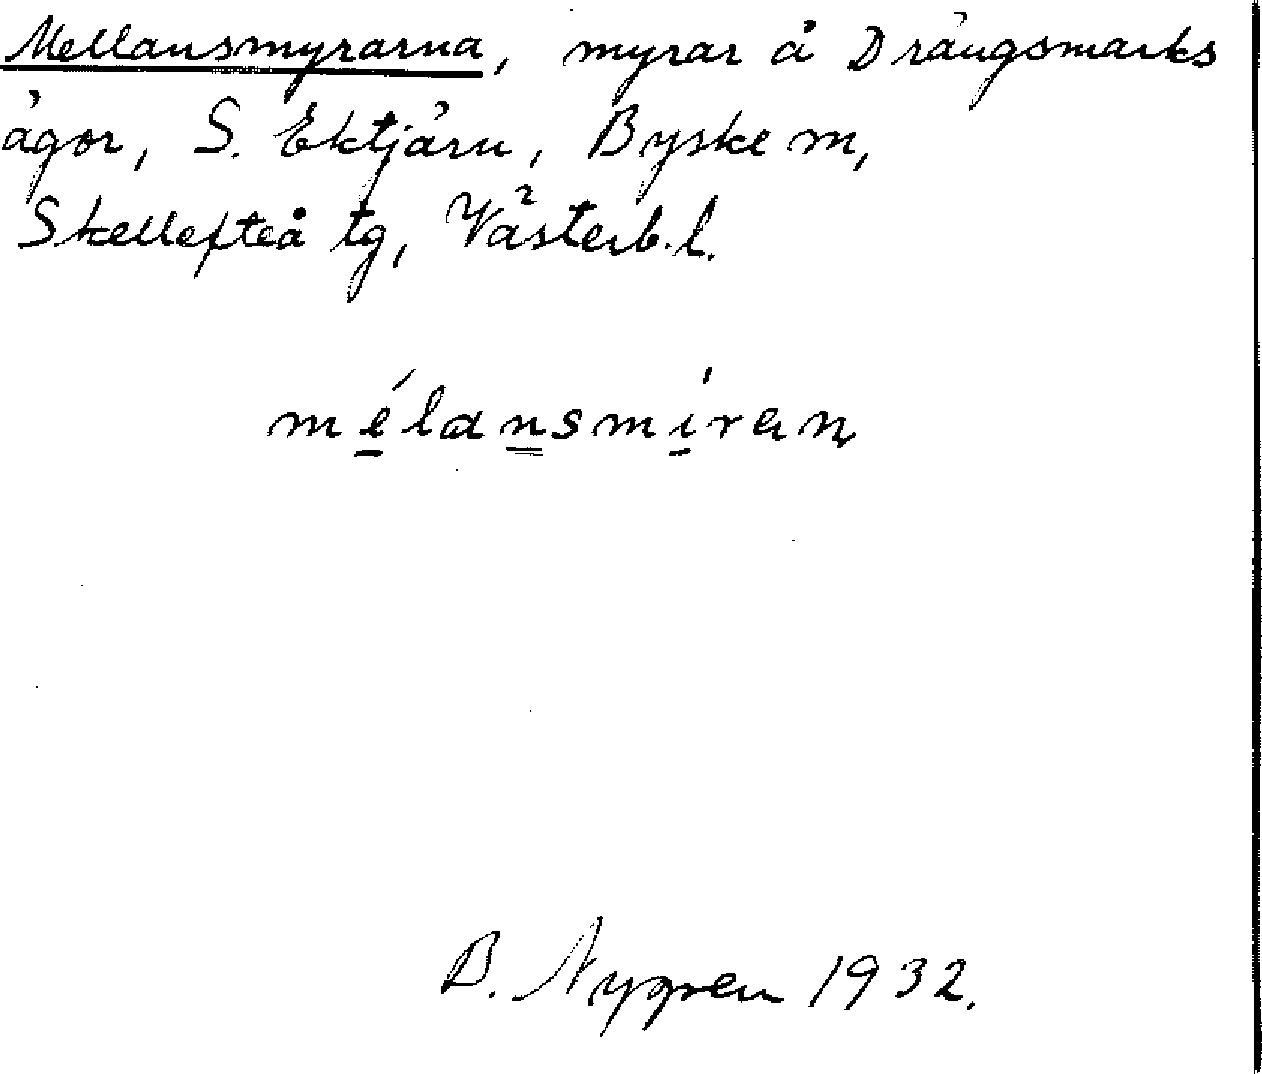 Mellansmyrarna, myrar å Drängsmarks
ägor, S. Ektjärn, Byske sn,
Skellefteå tg, Västerb. l.
mélansmíran
B. Nygren 1932.